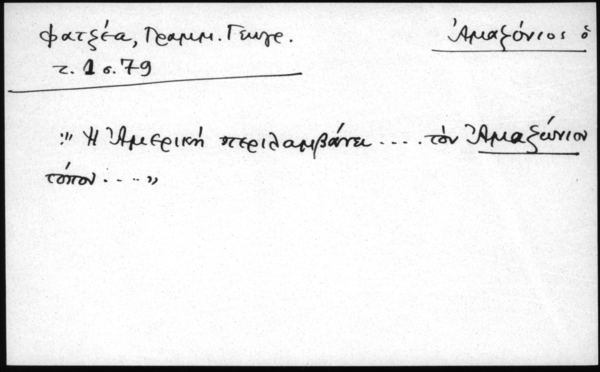 Φατζέα, Γραμμ. Γεωγρ.
Ἀμαζόνιος ὁ
τ. 1 σ. 79
:" Ἡ Ἀμερική περιλαμβάνει .... τὸν Ἀμαζώνιον
τόπον ...."